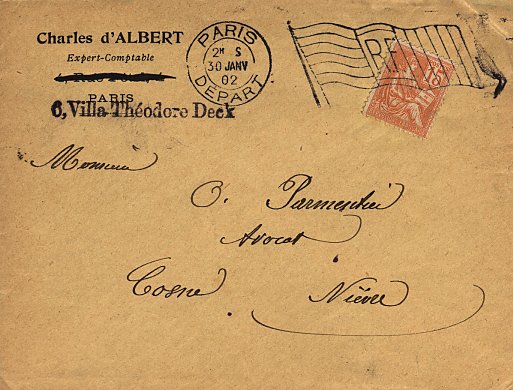 Charles d'ALBERT
Expert-Comptable
PARIS
6, Villa Théodore Deck
PARIS
2E S
30 JANV
02
DÉPART
RF
15
Monsieur
O. Parmentier
Avocat
Cosne Nièvre